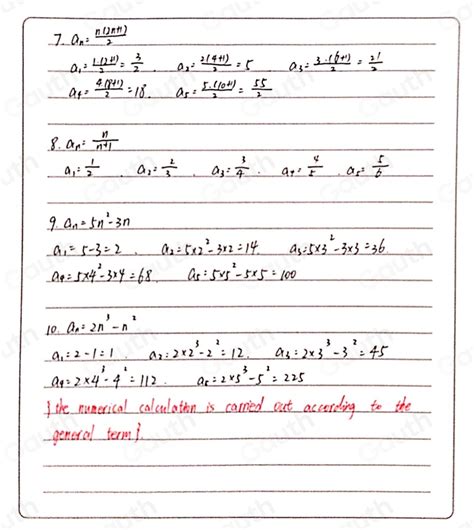 7. aₙ= n(2n+1)/2
a₁= 1·(2+1)/2 = 3/2 . a₂= 2(4+1)/2 = 5 . a₃= 3·(6+1)/2 = 21/2
a₄= 4(8+1)/2 = 18. a₅= 5·(10+1)/2 = 55/2
8. aₙ= n/n+1
a₁= 1/2 . a₂= 2/3 . a₃= 3/4 . a₄= 4/5 . a₅= 5/6
9. aₙ= 5n²-3n
a₁= 5-3=2 . a₂=5×2²-3×2=14. a₃=5×3²-3×3=36
a₄=5×4²-3×4=68. a₅=5×5²-5×5=100
10. aₙ= 2n³-n²
a₁=2-1=1. a₂=2×2³-2²=12. a₃=2×3³-3²=45
a₄=2×4³-4²=112. a₅=2×5³-5²=225
{the numerical calculation is carried out according to the
general term}.